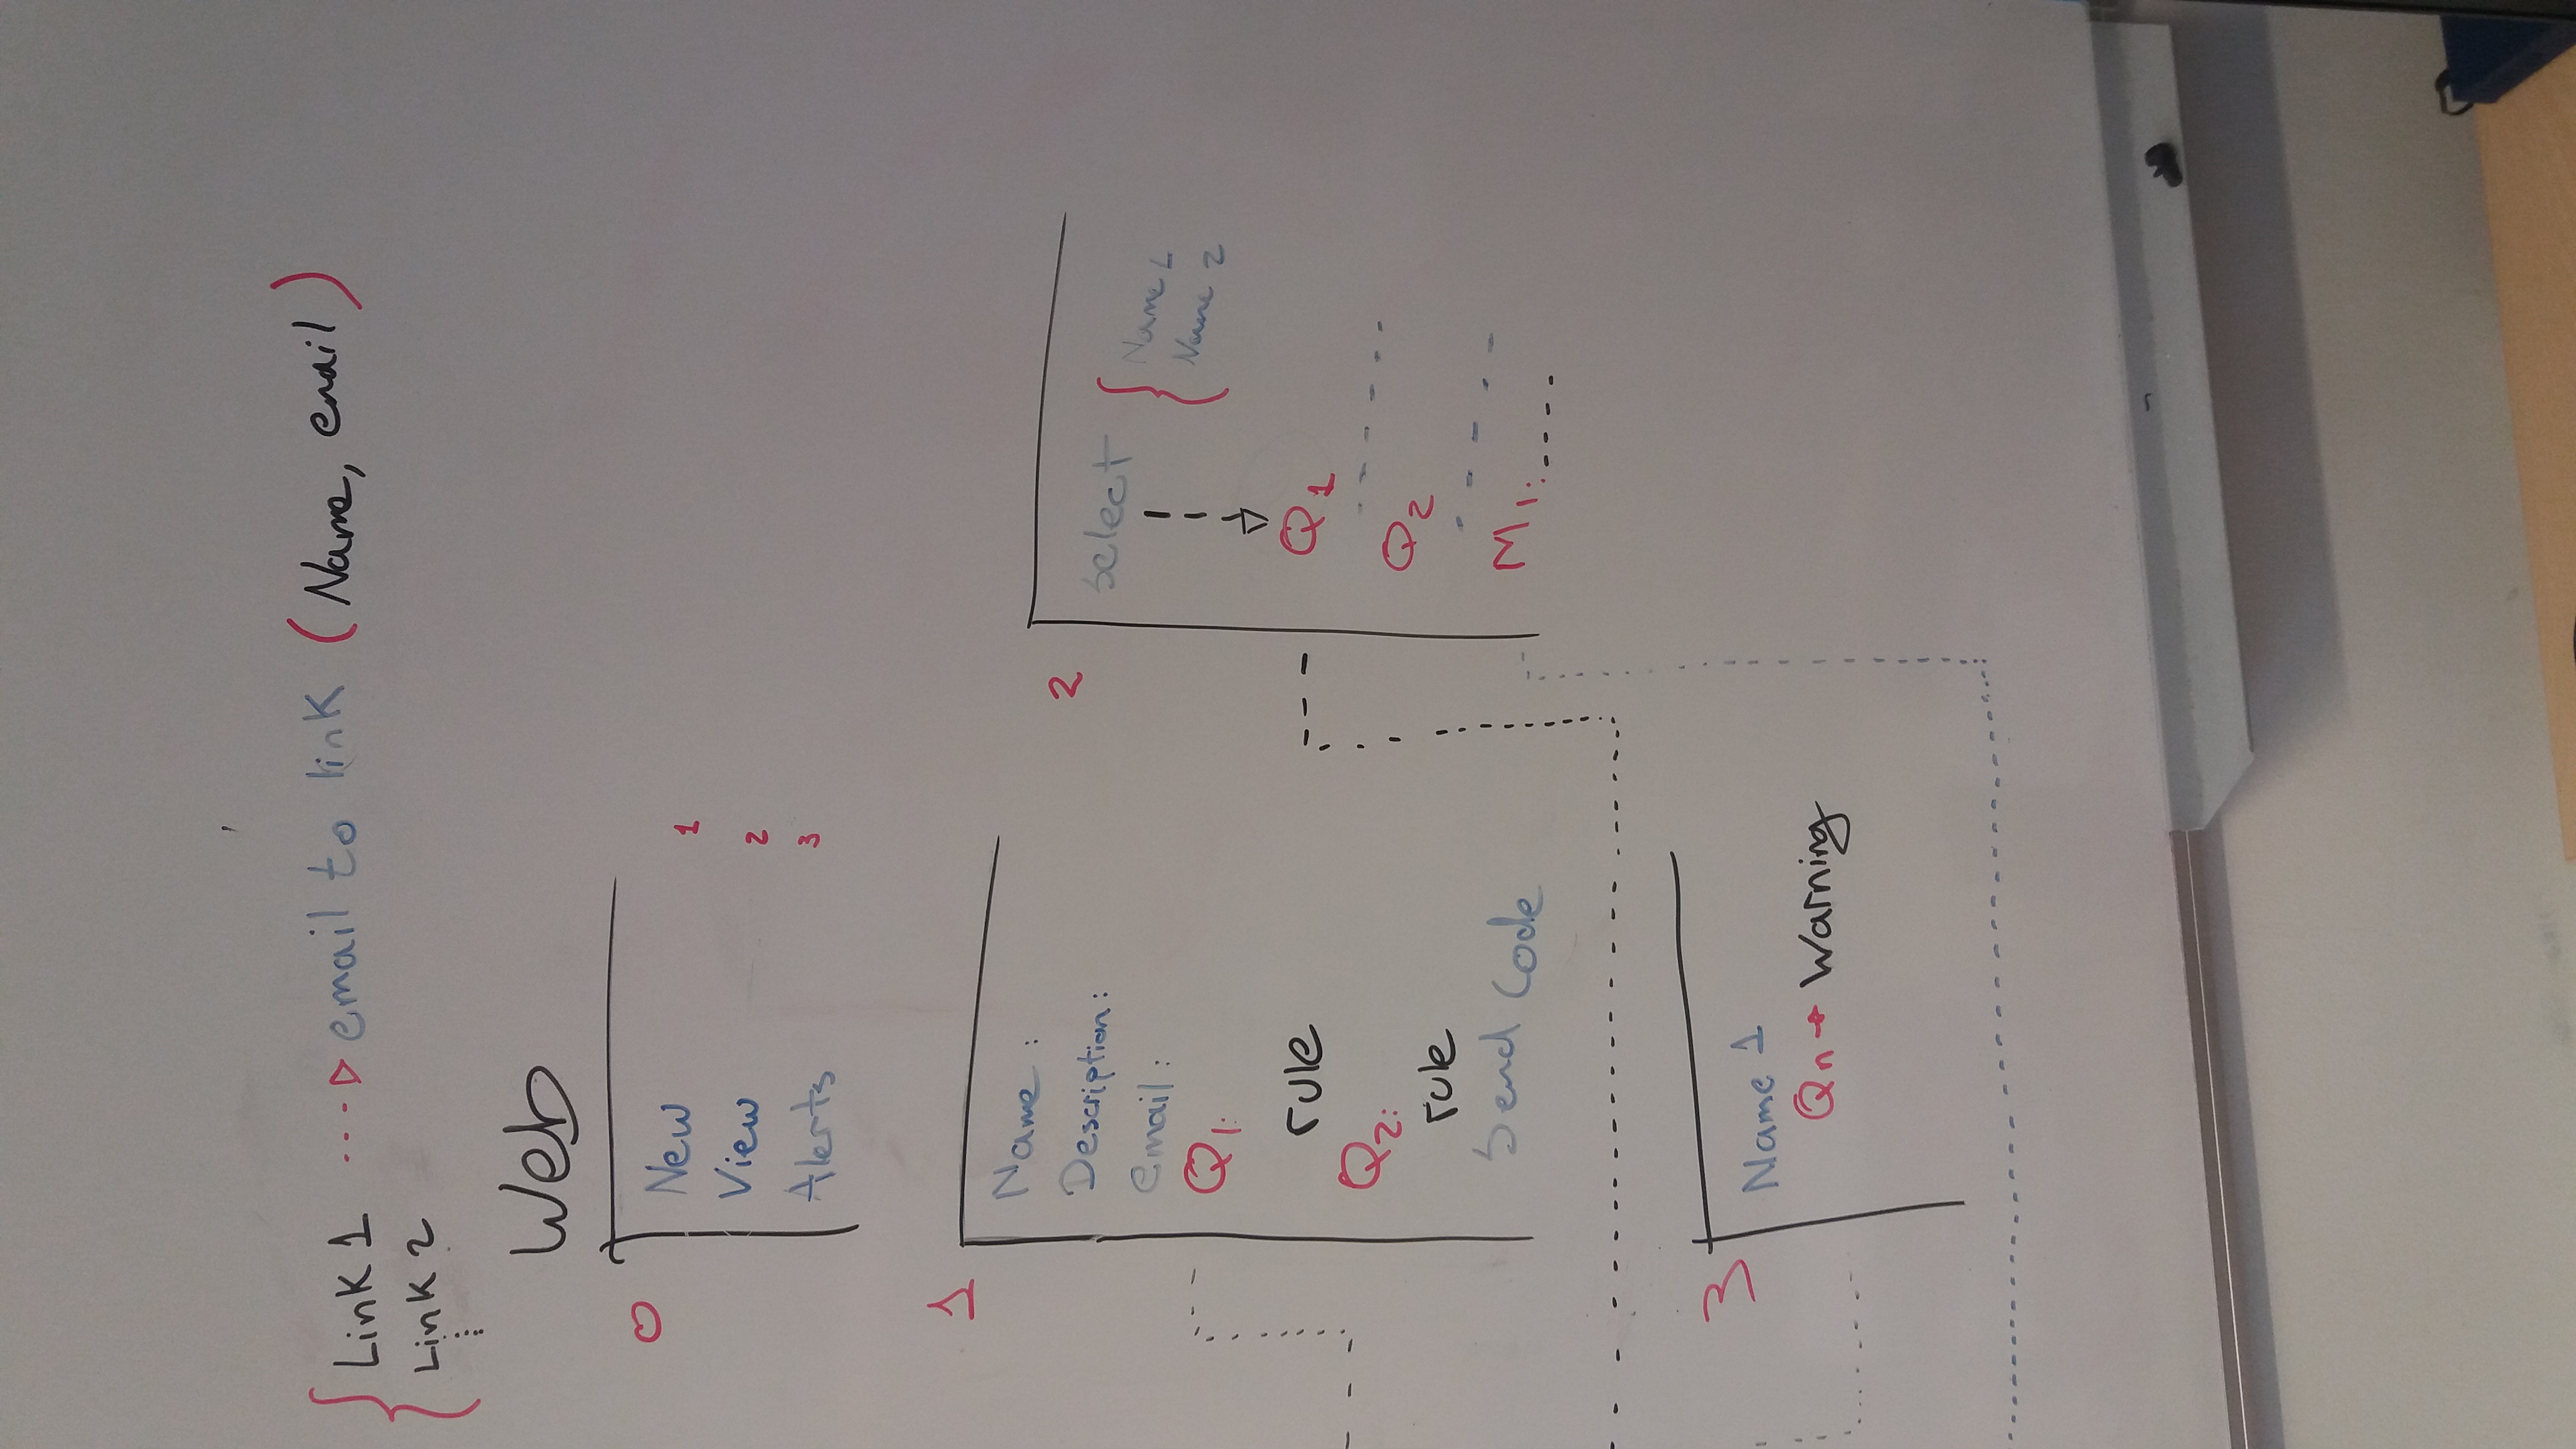 Link 1 ···▷ email to link (Name, email)
Link 2
Web
0
New 1
View 2
Alerts 3
1
Name :
Description:
email:
Q1:
rule
Q2:
rule
Send Code
2
Select { Name 1
Name 2
Q1
Q2
M1:
3
Name 1
Qn → Warning